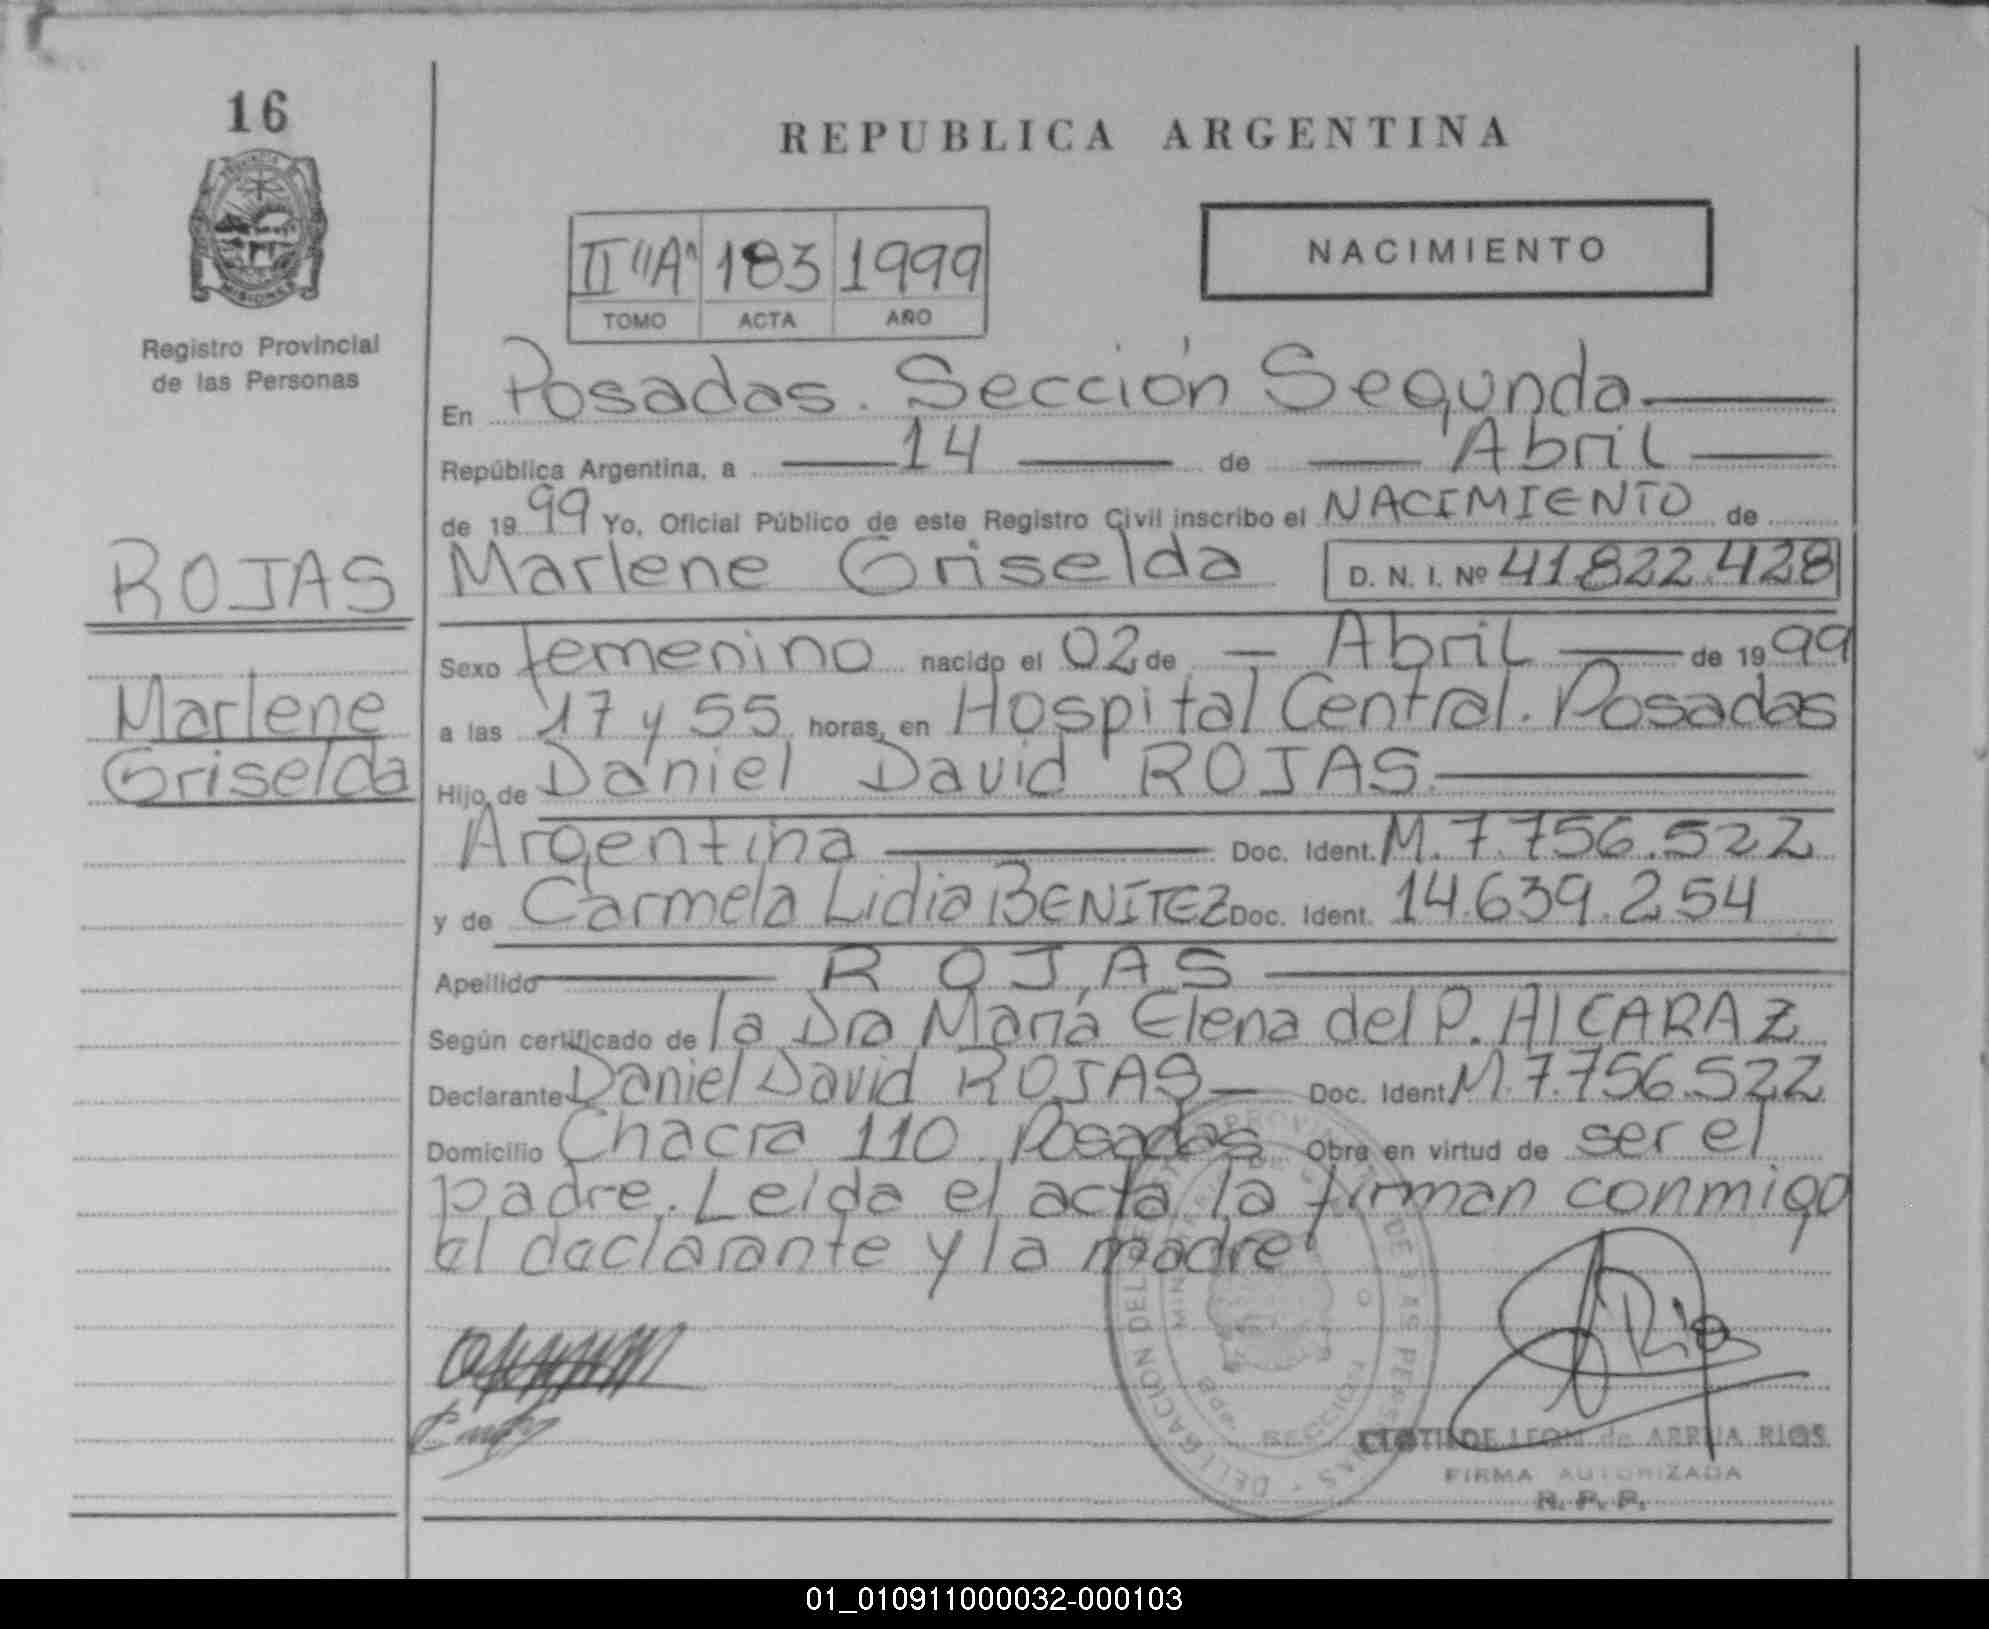 16
REPUBLICA ARGENTINA
MISIONES
Registro Provincial
de las Personas
NACIMIENTO
II "A" 183 1999
TOMO ACTA AÑO
En Posadas. Sección Segunda
República Argentina, a 14 de Abril
de 1999 Yo, Oficial Público de este Registro Civil inscribo el NACIMIENTO de
ROJAS
Marlene Griselda D. N. I. Nº 41.822.428
Sexo femenino nacido el 02 de Abril de 1999
Marlene
a las 17 y 55 horas, en Hospital Central. Posadas
Griselda
Hijo de Daniel David ROJAS
Argentina Doc. Ident. M. 7.756.522
y de Carmela Lidia BENÍTEZ Doc. Ident. 14.639.254
Apellido ROJAS
Según certificado de la Dra María Elena del P. AlCARAZ
Declarante Daniel David ROJAS Doc. Ident. M. 7.756.522
Domicilio Chacra 110 Posadas Obra en virtud de ser el
padre. Leída el acta la firman conmigo
el declarante y la madre
CLOTILDE LEON de ARRUA RIOS
FIRMA AUTORIZADA
R. P. P.
01_010911000032-000103